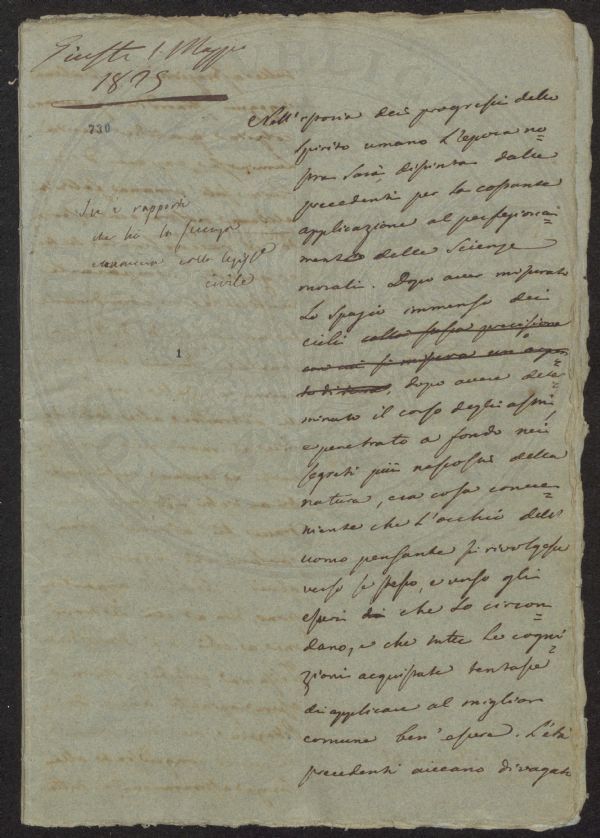 Giusti 1. Maggio
1825
730
Su i rapporti
che ha la scienza
economica colla legisl.e
civile
1
Nell'istoria dei progressi dello
spirito umano l'epoca no=
stra sarà distinta dalle
precedenti per la costante
applicazione al perfeziona=
mento delle Scienze
morali. Dopo aver misurato
lo spazio immenso dei
cieli colla stessa precisione
con cui si misura un
di terra, dopo avere deter=
minato il corso degli astri,
e penetrato a fondo nei
segreti più nascosti della
natura, era cosa conve=
niente che l'occhio dell'
uomo pensante si rivolgesse
verso se stesso, e verso gli
esseri di che lo circon=
dano, e che tutte le cogni=
zioni acquistate tentasse
di applicare al miglior
comune ben'essere. L'età
precedenti aveano divagato